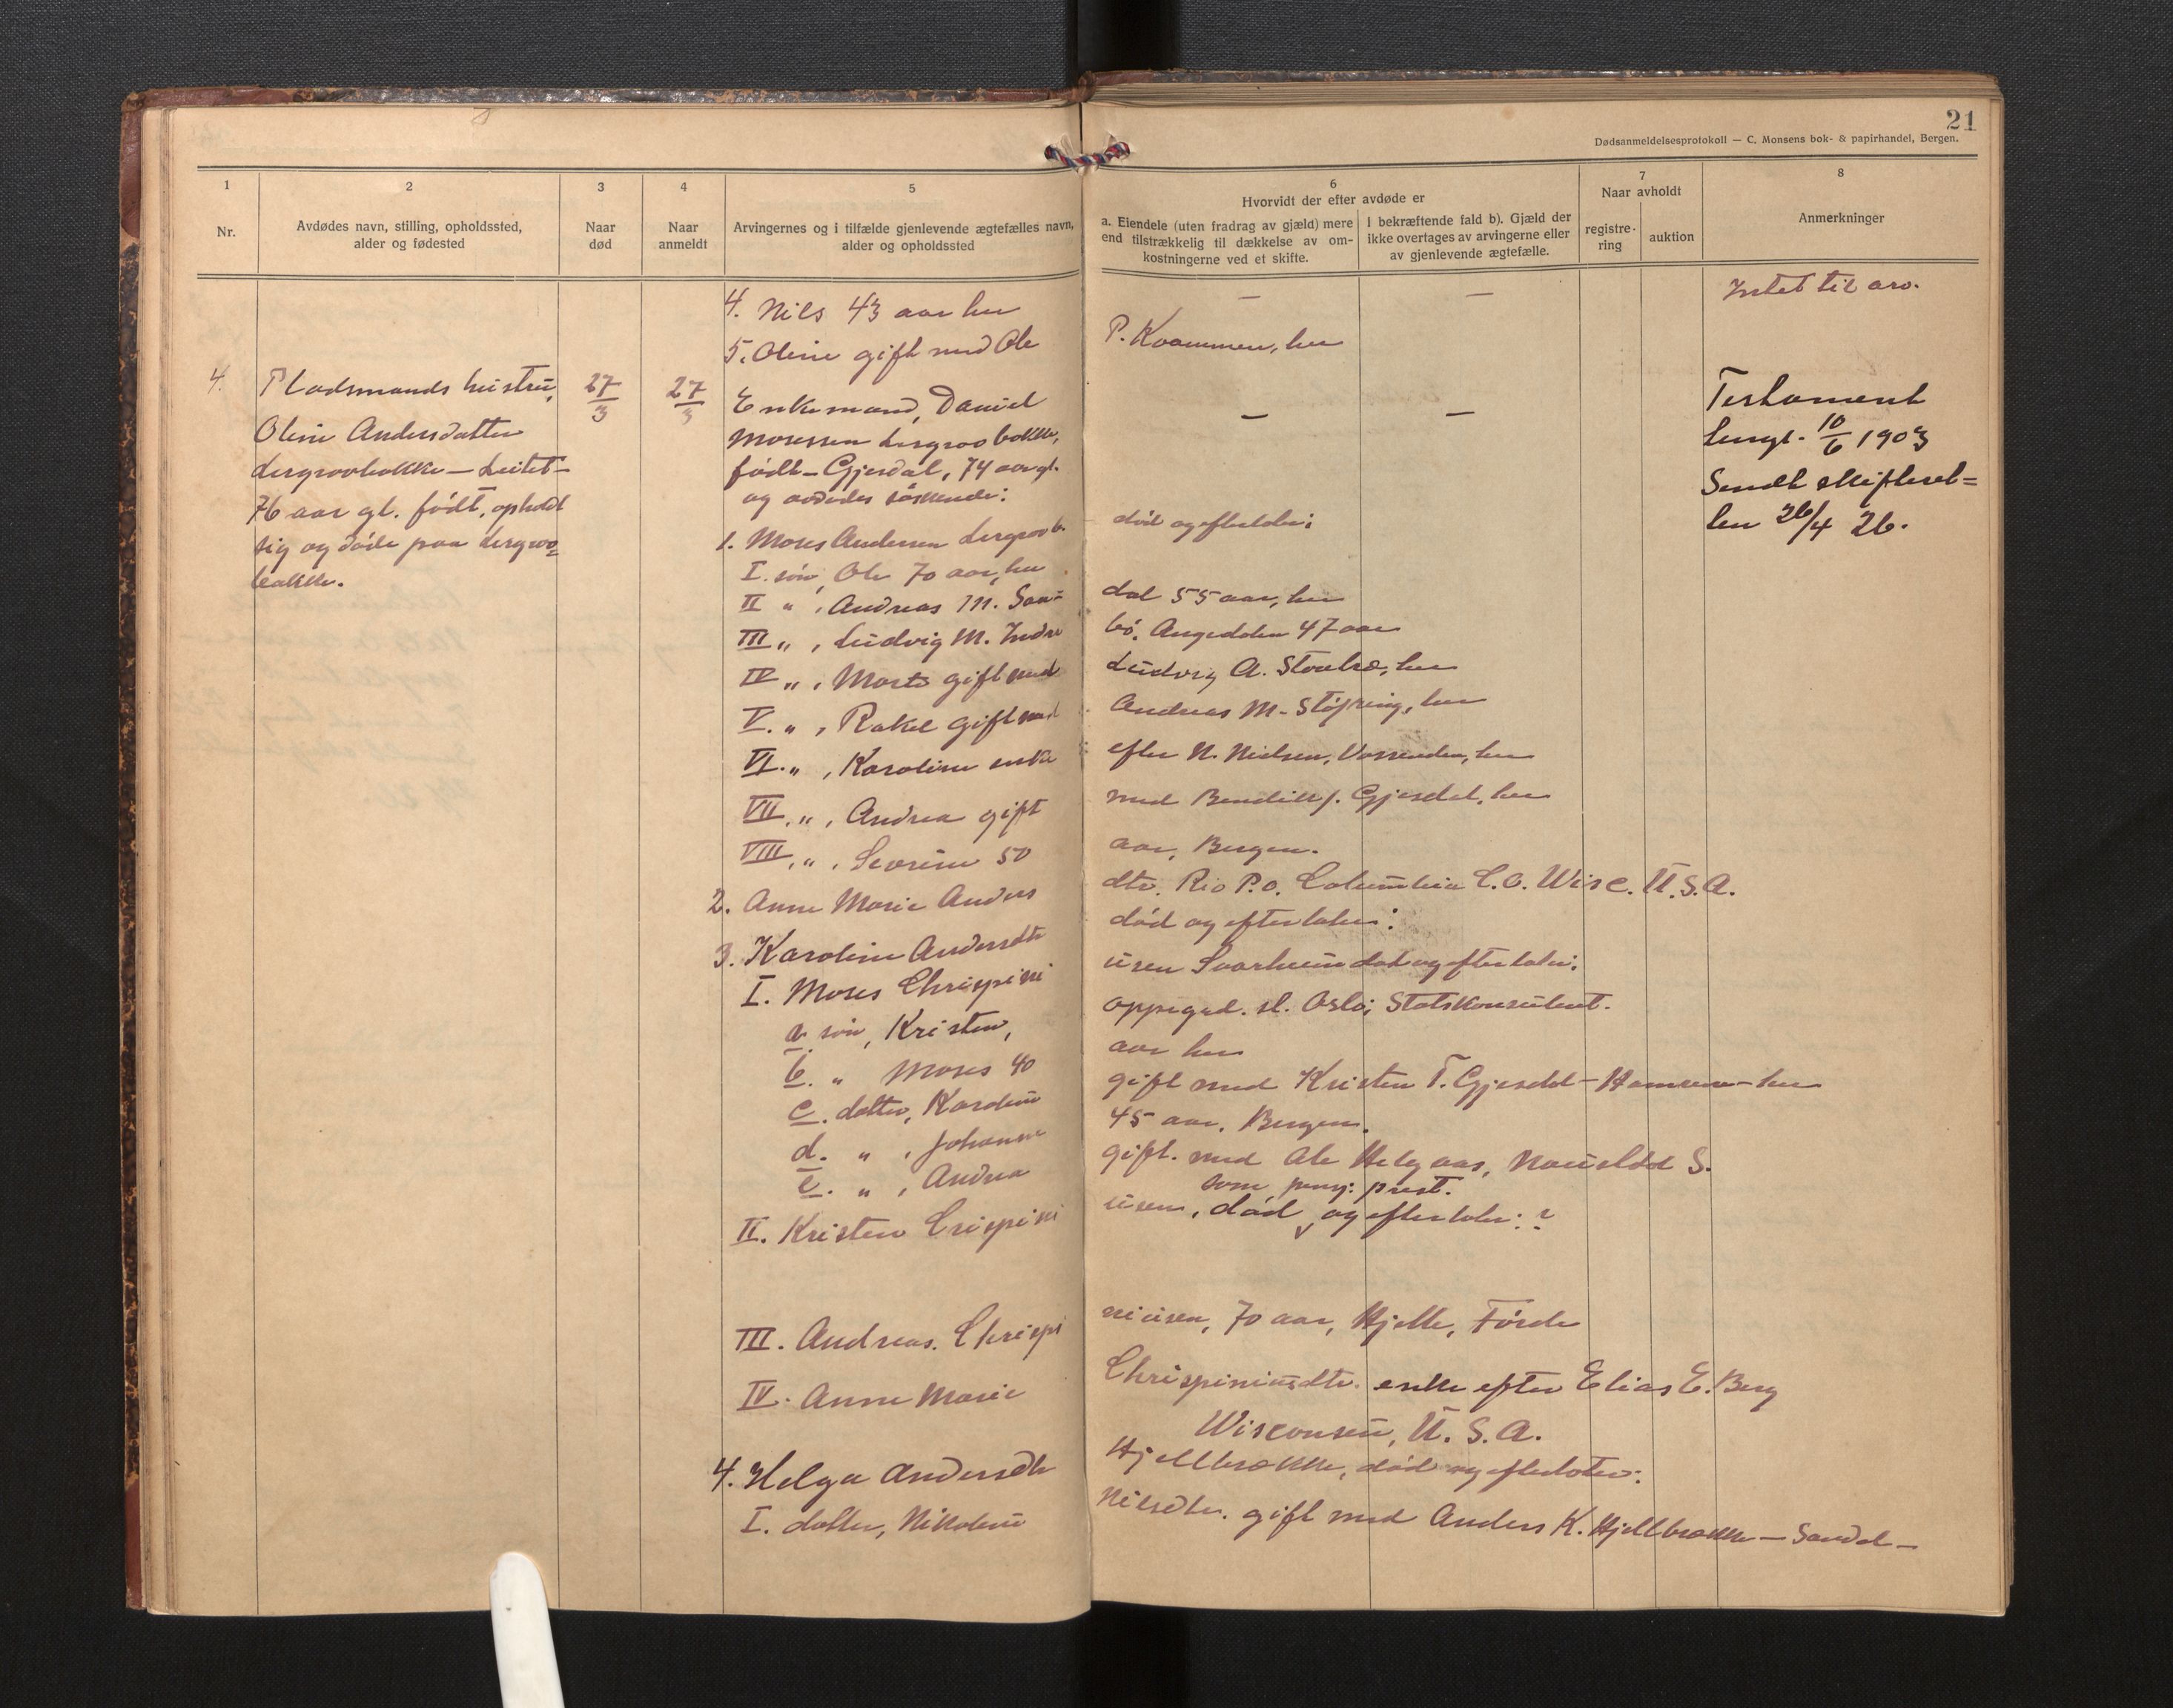 21
Dødsanmeldelsesprotokoll — C. Monsens bok- & papirhandel, Bergen.
1
Nr.
2
Avdødes navn, stilling, opholdssted,
alder og fødested
3
Naar
død
4
Naar
anmeldt
5
Arvingernes og i tilfælde gjenlevende ægtefælles navn,
alder og opholdssted
6
Hvorvidt der efter avdøde er
a. Eiendele (uten fradrag av gjæld) mere
end tilstrækkelig til dækkelse av om-
kostningerne ved et skifte.
I bekræftende fald b). Gjæld der
ikke overtages av arvingerne eller
av gjenlevende ægtefælle.
7
Naar avholdt
registre-
ring
auktion
8
Anmerkninger
4. Nils 43 aar her — — Intet til arv.
5. Oline gift med Ole P. Kvammen, her
4.
Pladsmands hustru,
Oline Andersdatter
Lergrovbakke — Leitet —
76 aar gl. født, opholdt
sig og døde paa Lergrov=
bakke.
27/3
27/3
Enkemand, Daniel — —
Mosessen Lergrovbakke,
født — Gjesdal, 74 aar gl.
og avdødes søskende:
Testament
tingl. 10/6 1903
Sendt skifteret=
ten 26/4 26.
1. Moses Andersen Lergrovb. død og efterlater:
I. søn, Ole 70 aar, her
II " , Andreas M. San= dal 55 aar, her
III " , Ludvig M. Indre bø, Angedalen 47 aar
IV " , gift med Ludvig A. her
V. " , Rakel gift med Andreas M. Støfring, her
VI. " , Karoline enke efter N. Nielsen, Vassenden, her
VII. " , Andrea gift med Bendik J. Gjesdal, her
VIII. " , Severine 50 aar, Bergen.
2. Anne Marie Anders dtr. Rio P.O. Columbia C.O. Wisc. U.S.A.
3. Karoline Andersdtr død og efterlater:
I. Moses Chrispini usen død og efterlater:
a. søn, Kristen, oppegrd. st. Oslo, Statskonsulent.
b. " Moses 40 aar her
c. datter, Karoline gift med Kristen T. Gjesdal — — her
d. " , Johanne 45 aar, Bergen.
e. " , Andrea gift. med Ole Helgaas, S.
II. Kristen Crispini usen, død som prest. og efterlater: ?
III. Andreas. Chrispi niusen, 70 aar, Hjelle, Førde
IV. Anne Marie Chrispiniusdtr. enke efter Elias E. Berg
Wisconsin, U. S. A.
4. Helga Andersdtr Hjellbrække, død og efterlater:
I. datter, Nikoline Nilsdtr. gift med Anders K. Hjellbrække — Sandal —